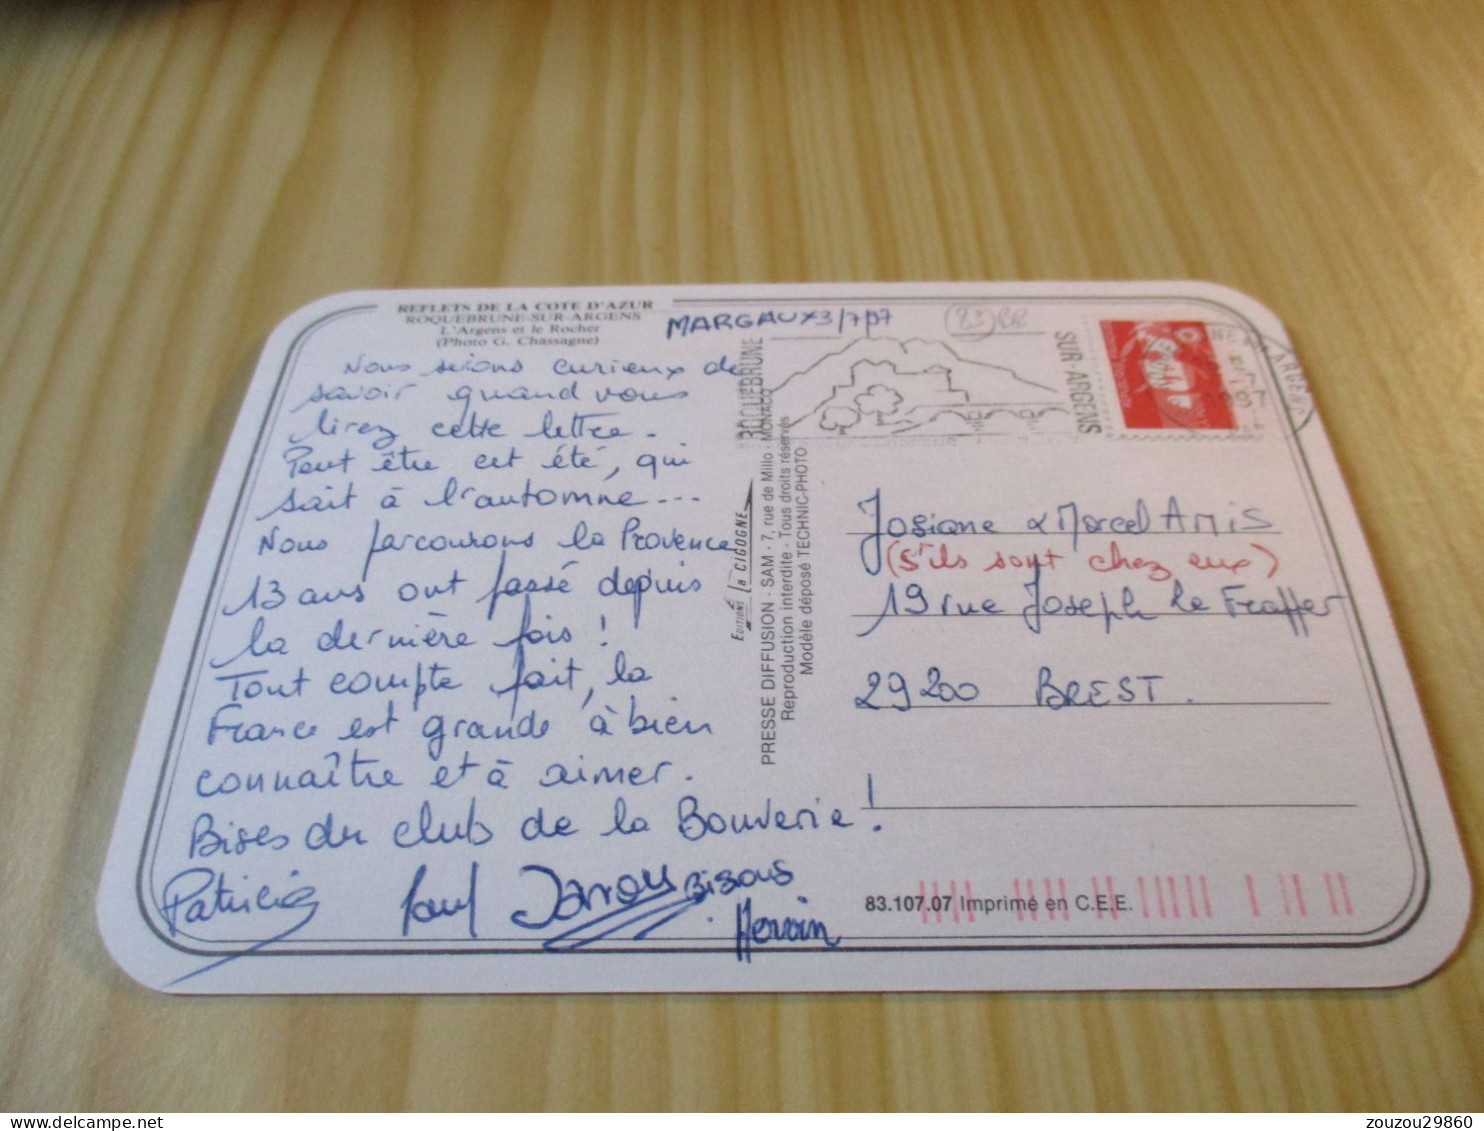 REFLETS DE LA COTE D'AZUR
ROQUEBRUNE-SUR-ARGENS
L'Argens et le Rocher
(Photo G. Chassagne)
MARGAUX 3/7/97
83 BR
Nous serions curieux de
savoir quand vous
lirez cette lettre.
Peut être cet été, qui
sait à l'automne...
Nous parcourons la Provence
13 ans ont passé depuis
la dernière fois !
Tout compte fait, la
France est grande à bien
connaître et à aimer.
Bises du club de la Bouverie !
Patricia Paul
Bisous
ROQUEBRUNE
SUR-ARGENS
EDITIONS la CIGOGNE
PRESSE DIFFUSION - SAM - 7, rue de Millo - MONACO
Reproduction interdite - Tous droits réservés
Modèle déposé TECHNIC-PHOTO
Josiane & Marcel AMIS
(s'ils sont chez eux)
19 rue Joseph Le
29200 BREST.
83.107.07 Imprimé en C.E.E.
zouzou29860